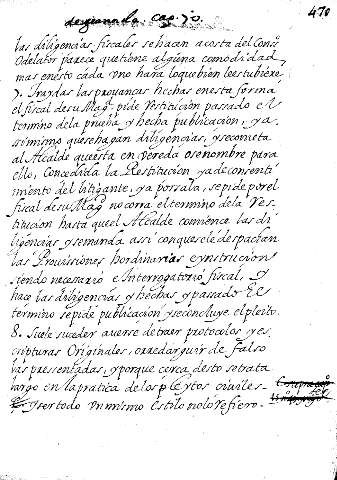 470
las diligencias fiscales se hacen a costa del Cons.
O delator parece que tiene alguna comodidad,
mas en esto cada uno hara lo que bien le estubiere.
7. Traydas las provanças hechas en esta forma
el fiscal de su Magd. pide Restitucion passado el
termino de la prueba y hecha publicacion, y a
simismo que se hagan diligencias, y se cometa
al Alcalde questa en vereda o se nombre para
ello, Concedida la Restitucion ya de consenti
miento del litigante, ya por sala, se pide por el
fiscal de su Magd. no corra el termino de la Res-
titucion hasta que el Alcalde comience las di
ligencias y se manda assi con que se le despachan
las Provissiones hordinarias e ynstrucion
siendo necesario e Interrogatorio fiscal, y
hace las diligencias y hechas y passado el
termino se pide publicacion y se concluye el pleito.
8. Suele suceder averse de traer protocolos y es
cripturas Originales, o redarguir de falso
las pressentadas, y porque cerca desto se trata
largo en la pratica de los pleytos civiles
y ser todo un mismo estilo no lo refiero.